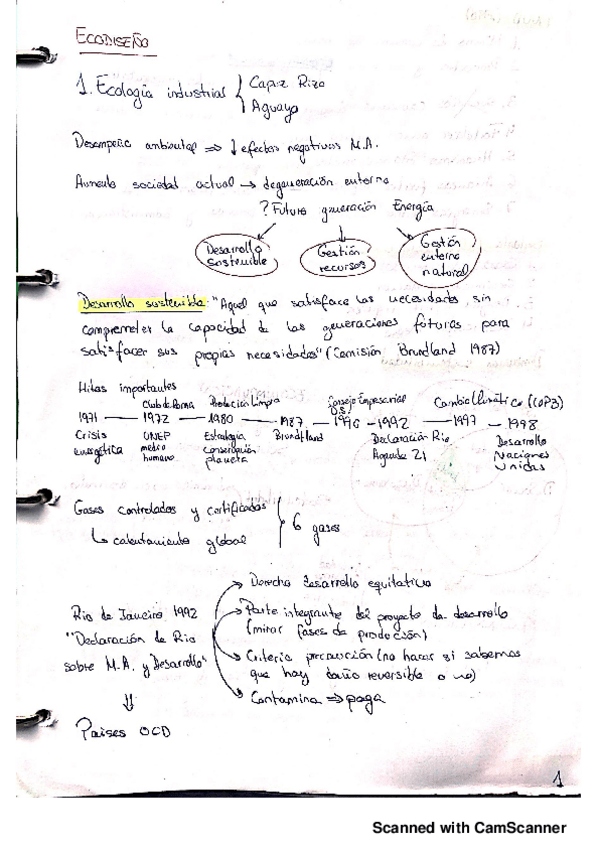 ECODISEÑO
1. Ecología industrial { Capuz Rizo
Aguayo
Desempeño ambiental ⇒ ↓ efectos negativos M.A.
Aumento sociedad actual → degeneración entorno
? Futuro generación Energía
Desarrollo sostenible
Gestión recursos
Gestión entorno natural
Desarrollo sostenible: "Aquel que satisface las necesidades sin
comprometer la capacidad de las generaciones futuras para
satisfacer sus propias necesidades" (Comisión Brundland 1987)
Hitos importantes
Club de Roma Producción Limpia Consejo Empresarial DS. Cambio Climático (COP3)
1971 — 1972 — 1980 — 1987 — 1990 — 1992 — 1997 — 1998
Crisis energética UNEP medio humano Estrategia Conservación planeta Brundtland Declaración Rio Agenda 21 Desarrollo Naciones Unidas
Gases controlados y certificados } 6 gases
↳ calentamiento global
Rio de Janeiro 1992
"Declaración de Rio
sobre M.A. y Desarrollo"
Derecho desarrollo equitativo
Parte integrante del proyecto de desarrollo
(mirar fases de producción)
Criterio precaución (no hacer si sabemos
que hay daño reversible o no)
Contamina ⇒ paga
⇓
Paises OCD
1
Scanned with CamScanner